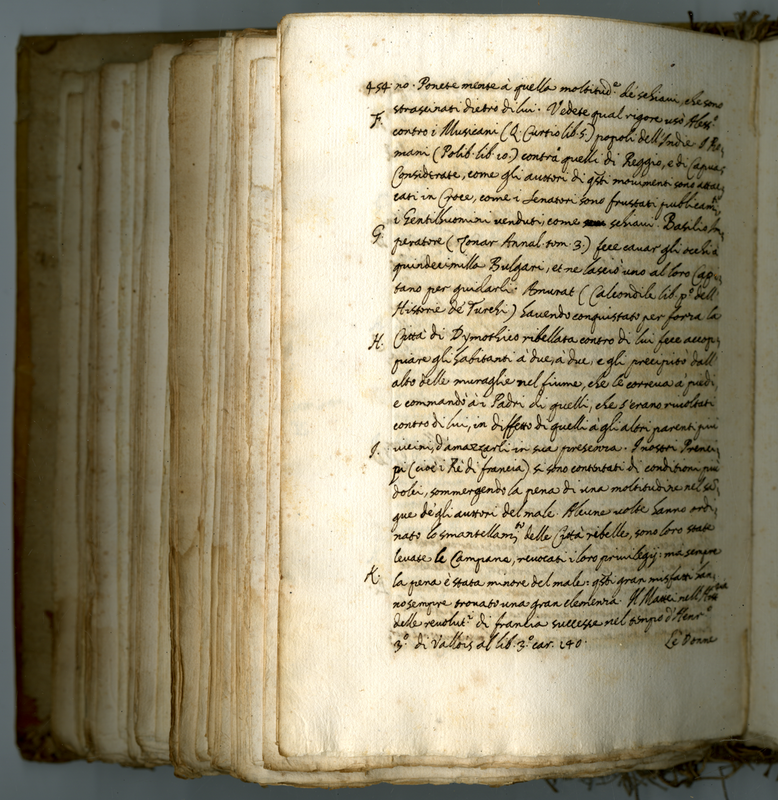 454 no. Ponete mente à quella moltitud.e de schiavi, che sono
strascinati dietro di lui. Vedete qual rigore usò Aless.o
F. contro i Musicani (Q. Curtio lib. 5.) popoli dell'Indie. I Ro,
mani (Polib. lib. 10.) contrà quelli di Reggio, e di Capua,
Considerate, come gli auttori di q̃sti movimenti sono attac,
cati in Croce, come i Senatori sono frustati publicam.te,
i Gentilhuomini venduti, come schiavi. Basilio Im,
G. peratore (Zonar Annal. tom. 3.) fece cavar gli occhi à
quindecimilla Bulgari, et ne lasciò uno al loro Capi,
tano per guidarli. Amurat (Calcondile lib. p.o dell'
Historie de Turchi) havendo conquistato per forza la
H. Città di Dymothico ribellata contro di lui fece accop,
piare gli habitanti à due, à due, e gli precipitò dall'
alto delle muraglie nel fiume, che le correva à piedi,
e commandò à i Padri di quelli, che s'erano rivoltati
contro di lui, in diffetto di quelli à gli altri parenti più
I. vicini, d'amazzarli in sua presenza. I nostri Prenci,
pi (cioè i Rè di francia) si sono contentati di conditioni più
dolci, sommergendo la pena di una moltitudine nel san,
gue de gli auttori del male. Alcune volte hanno ordi,
nato lo smantellam.to delle Città ribelle, sono loro state
levate le Campane, revocati i loro privilegij: ma sempre
K. la pena è stata minore del male: q̃sti gran misfatti han,
no sempre trovato una gran clemenza. Il Mattei nell'Historia
delle revolut.i di francia successe nel tempo d'Henr.o
3.o di Vallois al lib. 3.o car. 140. Le Donne